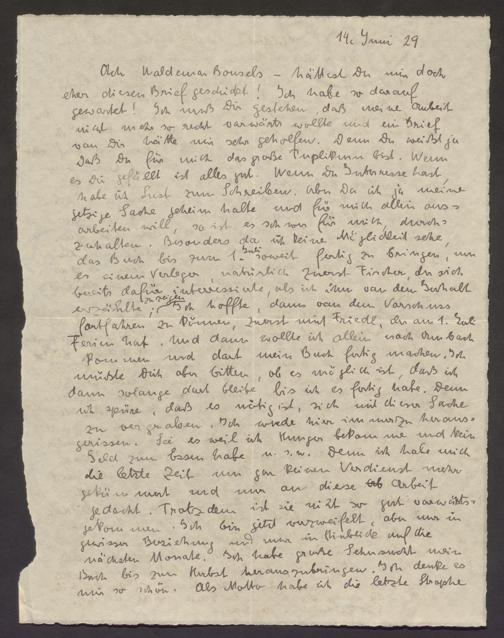 14. Juni 29
Ach Waldemar Bonsels – hättest Du mir doch
eher diesen Brief geschickt! Ich habe so darauf
gewartet! Ich muß Dir gestehen, daß meine Arbeit
nicht mehr so recht vorwärts wollte und ein Brief
von Dir hätte mir sehr geholfen. Denn Du weißt ja
daß Du für mich das große Publikum bist. Wenn
es Dir gefällt ist alles gut. Wenn Du Interesse hast,
habe ich Lust zum Schreiben. Aber da ich ja meine
jetzige Sache geheim halte und für mich allein aus-
arbeiten will, so ist es schwer für mich, durch-
zuhalten. Besonders da ich keine Möglichkeit sehe,
das Buch bis zum 1. Juli soweit fertig zu bringen, um
es einem Verleger, natürlich zuerst Fischer, der sich
bereits dafür interessierte, als ich ihm von dem Inhalt
erzählte, zu zeigen. Ich hoffte, dann von dem Vorschuss
fortfahren zu können, zuerst mit Friedl, der am 1. Juli
Ferien hat. Und dann wollte ich allein nach Ambach
kommen und dort mein Buch fertig machen. Ich
müßte Dich aber bitten, ob es möglich ist, daß ich
dann solange dort bleibe bis ich es fertig habe. Denn
ich spüre, daß es nötig ist, sich mit dieser Sache
zu vergraben. Ich werde hier immerzu heraus-
gerissen. Sei es weil ich Hunger bekomme und kein
Geld zum Essen habe u.s.w. Denn ich habe mich
die letzte Zeit um gar keinen Verdienst mehr
gekümmert und nur an diese Arbeit
gedacht. Trotzdem ist sie nicht so gut vorwärts-
gekommen. Ich bin jetzt verzweifelt, aber nur in
gewisser Beziehung und nur im Hinblick auf die
nächsten Monate. Ich habe große Sehnsucht mein
Buch bis zum Herbst herauszubringen. Ich denke es
mir so schön. Als Motto habe ich die letzte Strophe